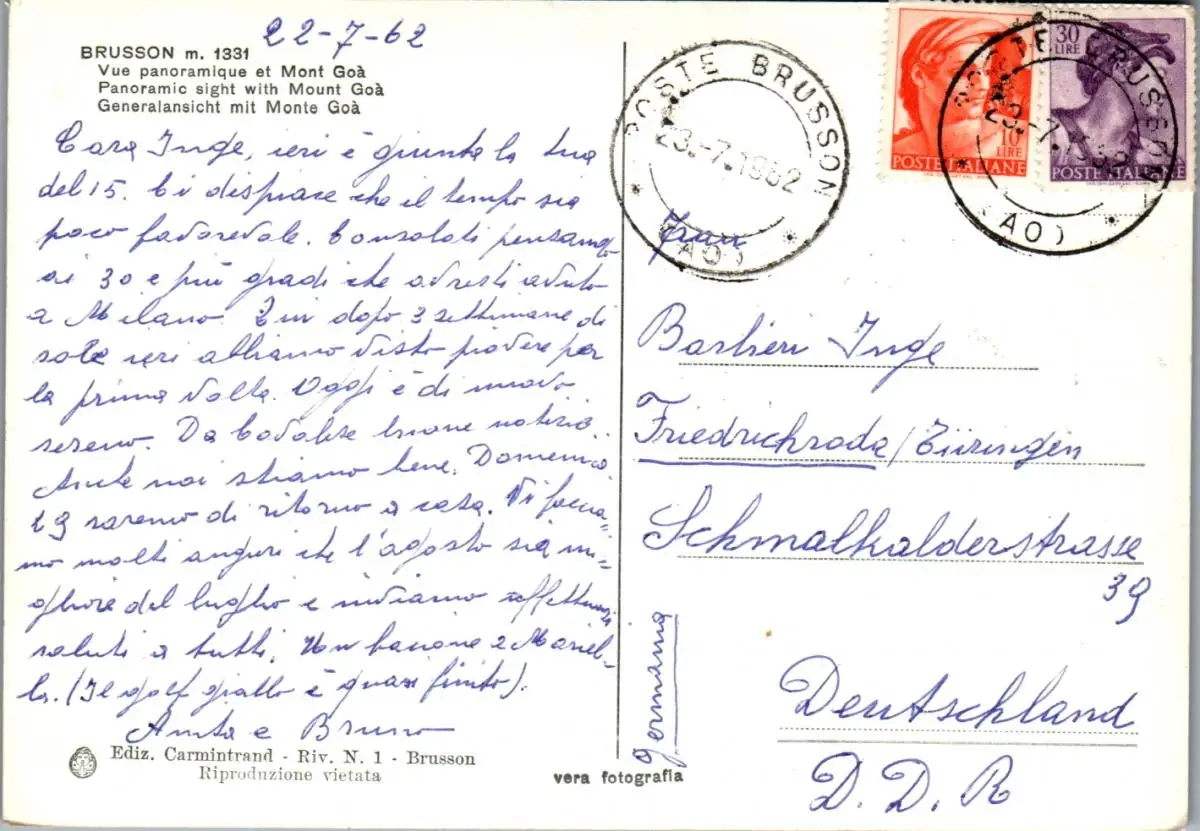 22-7-62
BRUSSON m. 1331
Vue panoramique et Mont Goà
Panoramic sight with Mount Goà
Generalansicht mit Monte Goà
Cara Inge, ieri è giunta la tua
del 15. Ci dispiace che il tempo sia
poco favorevole. Consolati pensando
ai 30 e più gradi che avresti avuto
a Milano. Qui dopo 3 settimane di
sole ieri abbiamo visto piovere per
la prima volta. Oggi è di nuovo
sereno. Da buone notizie.
Anche noi stiamo bene. Domenica
29 saremo di ritorno a casa. Vi faccia-
mo molti auguri che l'agosto sia mi-
gliore del luglio e inviamo affettuosi
saluti a tutti. Un bacione a Mariel-
la. (Il golf giallo è quasi finito).
Anita e Bruno
Ediz. Carmintrand - Riv. N. 1 - Brusson
Riproduzione vietata
vera fotografia
POSTE BRUSSON
23.-7.1962
(AO)
10 LIRE
POSTE ITALIANE
30 LIRE
POSTE ITALIANE
POSTE BRUSSON
23.-7.1962
(AO)
Frau
Barbieri Inge
Friedrichroda/Türingen
Schmalkalderstrasse
39
Deutschland
D. D. R
Germania